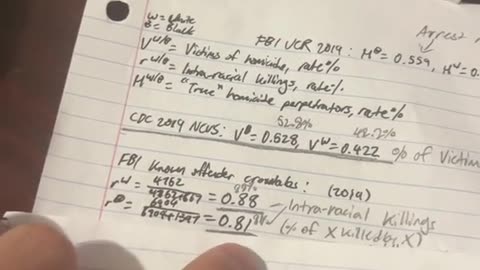 W = White
B = Black
Arrest
FBI UCR 2019: H^B = 0.559, H^W = 0.
V^W/B = Victims of homicide, rate%
r^W/B = Intra-racial killings, rate%
H^W/B = "True" homicide perpetrators, rate%
52.8% 42.2%
CDC 2019 NCVS: V^B = 0.528, V^W = 0.422 % of Victim
FBI Known offender crosstabs: (2019)
r^W = = 0.88 Intra-racial killings
r^B = = 0.81 (% of X killed by X)